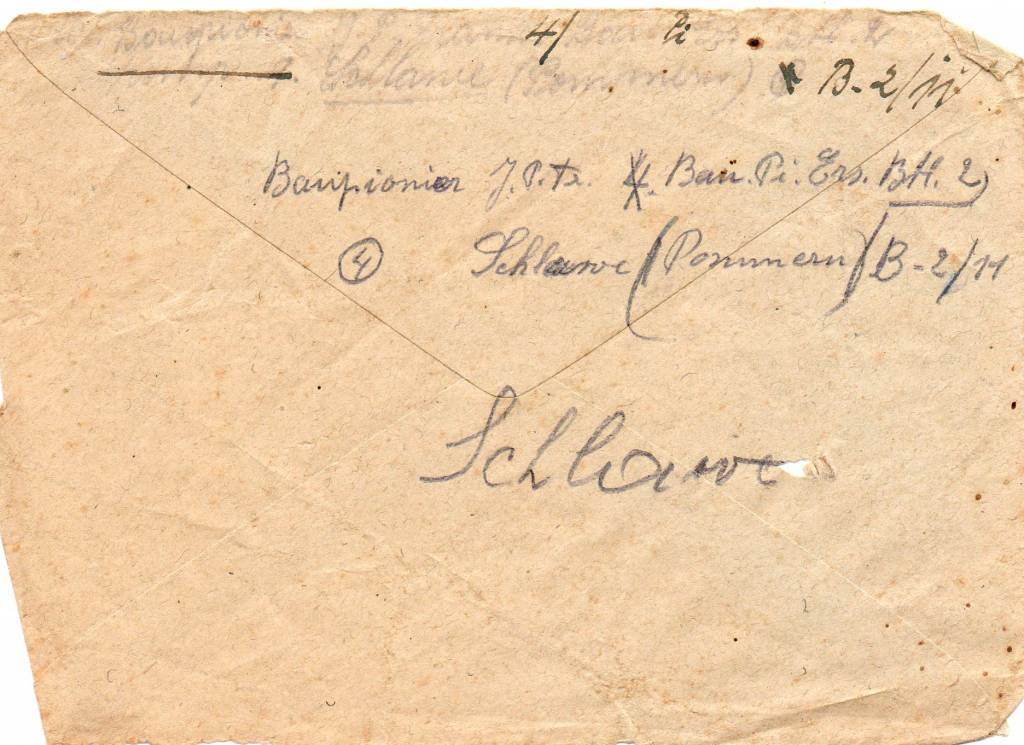 Baupionier 4/ Pi
Schlawe (Pommern) B-2/11
Baupionier J. P. 4. Bau. Pi. Ers. Btl. 2
④ Schlawe (Pommern) B-2/11
Schlawe